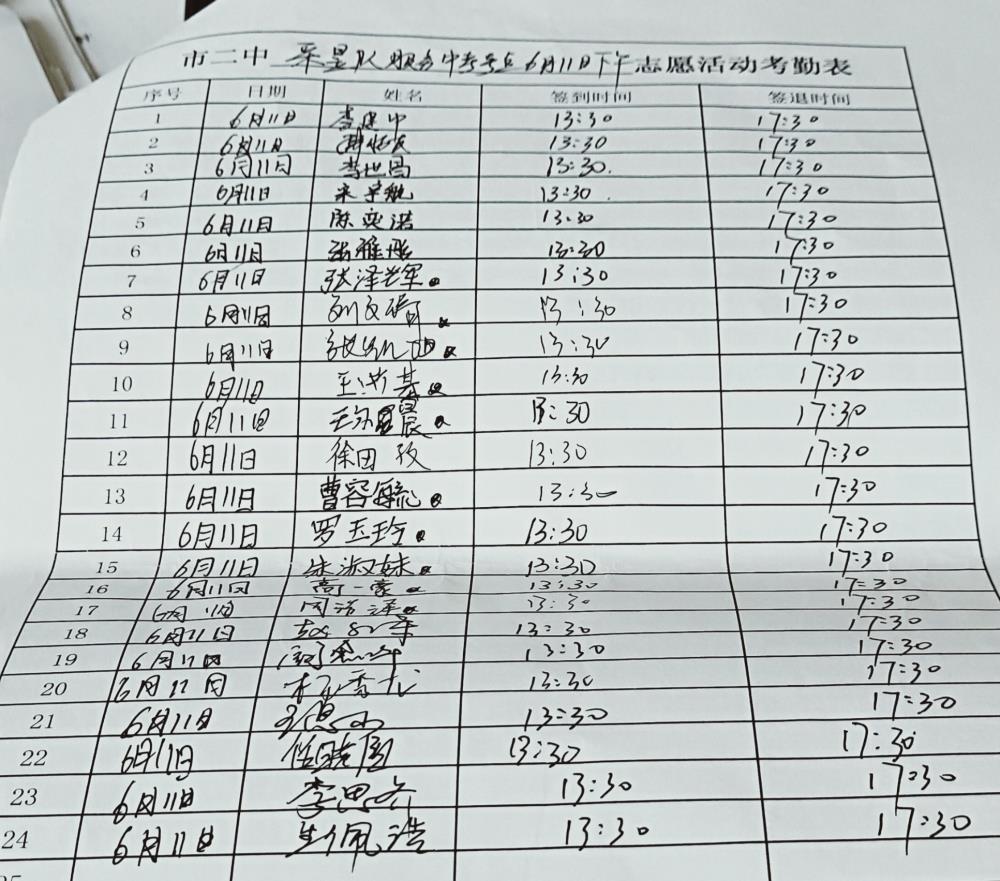 市二中 采星队服务中考考点6月11日下午 志愿活动考勤表
序号 日期 姓名 签到时间 签退时间
1 6月11日 李建中 13:30 17:30
2 6月11日 13:30 17:30
3 6月11日 李世昌 13:30. 17:30
4 6月11日 宋宇航 13:30 17:30
5 6月11日 陈奕诺 13:30 17:30
6 6月11日 张雅彤 13:30 17:30
7 6月11日 张泽军 13:30 17:30
8 6月11日 刘文 13:30 17:30
9 6月11日 张 13:30 17:30
10 6月11日 王 基 13:30 17:30
11 6月11日 晨 13:30 17:30
12 6月11日 徐田玫 13:30 17:30
13 6月11日 曹容毓 13:30 17:30
14 6月11日 罗玉玲 13:30 17:30
15 6月11日 朱淑妹 13:30 17:30
16 6月11日 高一豪 13:30 17:30
17 6月11日 周 泽 13:30 17:30
18 6月11日 13:30 17:30
19 6月11日 13:30 17:30
20 6月11日 13:30 17:30
21 6月11日 13:30 17:30
22 6月11日 任晓 13:30 17:30
23 6月11日 李思 13:30 17:30
24 6月11日 佩浩 13:30 17:30